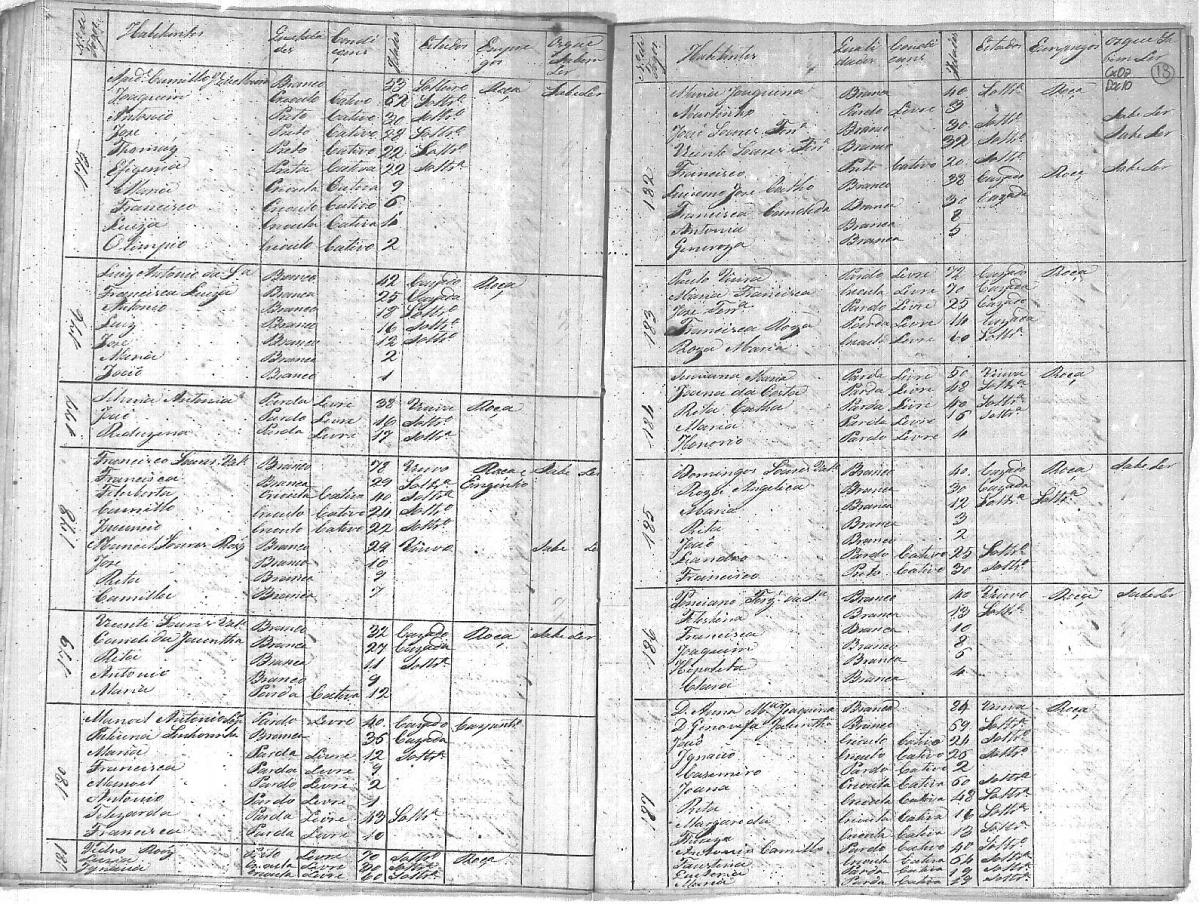 Habitantes Qualidades Condições Idades Estados Empregos Os que sabem Ler
175
And.e Camillo Branco 53 Solteiro Roça Sabe Ler
Joaquim Crioulo Cativo 62 Soltº
Antonio Preto Cativo 30 Soltº
Jose Preto Cativo 22 Soltº
Thomaz Preto Cativo 22 Soltº
Efigenia Preta Cativa 22 Soltª
Maria Crioula Cativa 9
Francisco Crioulo Cativo 6
Luiza Crioula Cativa 4
Olimpio Crioulo Cativo 2
176
Luiz Antonio da Sª Branco 42 Cazado Roça
Francisca Luiza Branca 25 Cazada
Antonio Branco 19 Soltº
Luiz Branco 16 Soltº
Jose Branco 12 Soltº
Maria Branca 2
João Branco 1
177
Antonia Parda Livre 38 Viuva Roça
José Pardo Livre 16 Soltº
Parda Livre 17 Soltª
178
Francisco Soares Branco 78 Viuvo Roça e Sabe Ler
Francisca Branca 29 Soltª Enginho
Felisberta Crioula Cativa 40 Soltª
Camillo Crioulo Cativo 24 Soltº
Crioulo Cativo 22 Soltº
Manoel Soares Roiz Branco 29 Viuvo Sabe Le
Jose Branco 10
Rita Branca 9
Camilla Branca 7
179
Vicente Soares Branco 32 Cazado Roça Sabe Ler
Candida Jacintha Branca 27 Cazada
Rita Branca 11 Soltª
Antonio Branco 9
Maria Parda Cativa 12
180
Manoel Antonio Pardo Livre 40 Cazado Carpintº
Branca 35 Cazada
Maria Parda Livre 12 Soltª
Francisca Parda Livre 9
Manoel Pardo Livre 2
Antonio Pardo Livre 1
Felizarda Parda Livre 43 Soltª
Francisca Parda Livre 10
181
Pedro Roiz Preto Livre 70 Soltº Roça
Luzia Crioula Livre Soltª
Ignacia Crioula Livre 60 Soltª
Habitantes Qualidades Condições Idades Estados Empregos os que Sabem Ler
18
182
Maria Joaquina Branca 40 Soltª Roça
Martinho Pardo Livre 3
João Soares Ferrª Branco 30 Soltº Sabe Ler
Vicente Soares Ferrª Branco 32 Soltº Sabe Ler
Francisco Preto Cativo 20 Soltº
Jose Branco 38 Cazado Roça Sabe Ler
Francisca Candida Branca 30 Cazada
Antonia Branca 8
Generoza Branca 5
183
Paulo Vieira Pardo Livre 72 Cazado Roça
Maria Francisca Crioula Livre 70 Cazada
Jose Ferrª Pardo Livre 25 Cazado
Francisca Roza Parda Livre 14 Cazada
Roza Maria Crioula Livre 60 Soltª
184
Maria Parda Livre 50 Viuva Roça
Joana da Costa Parda Livre 48 Soltª
Rita Parda Livre 40 Soltª
Maria Parda Livre 16 Soltª
Honorio Pardo Livre 4
185
Domingos Soares Branco 40 Cazado Roça Sabe Ler
Roza Angelica Branca 30 Cazada
Maria Branca 12 Soltª Soltª
Rita Branca 3
João Branco 2
Leandro Pardo Cativo 25 Soltº
Francisco Preto Cativo 30 Soltº
186
Branco 40 Viuvo Roça Sabe Ler
Branca 13 Soltª
Francisca Branca 10
Joaquim Branco 8
Branca 6
Clara Branca 4
187
D. Anna Mª Jaquina Branca 24 Viuva Roça
D Genovefa Jacintha Branca 59 Soltª
João Crioulo Cativo 24 Soltº
Ignacio Crioulo Cativo 26 Soltº
Casemiro Pardo Cativo 2
Joana Crioula Cativa 50 Soltª
Rita Crioula Cativa 48 Soltª
Margarida Crioula Cativa 16 Soltª
Crioula Cativa 13 Soltª
Antonio Camillo Pardo Cativo 40 Soltº
Faustina Crioula Cativa 64 Soltª
Eufemia Parda Cativa 19 Soltª
Maria Parda Cativa Soltª